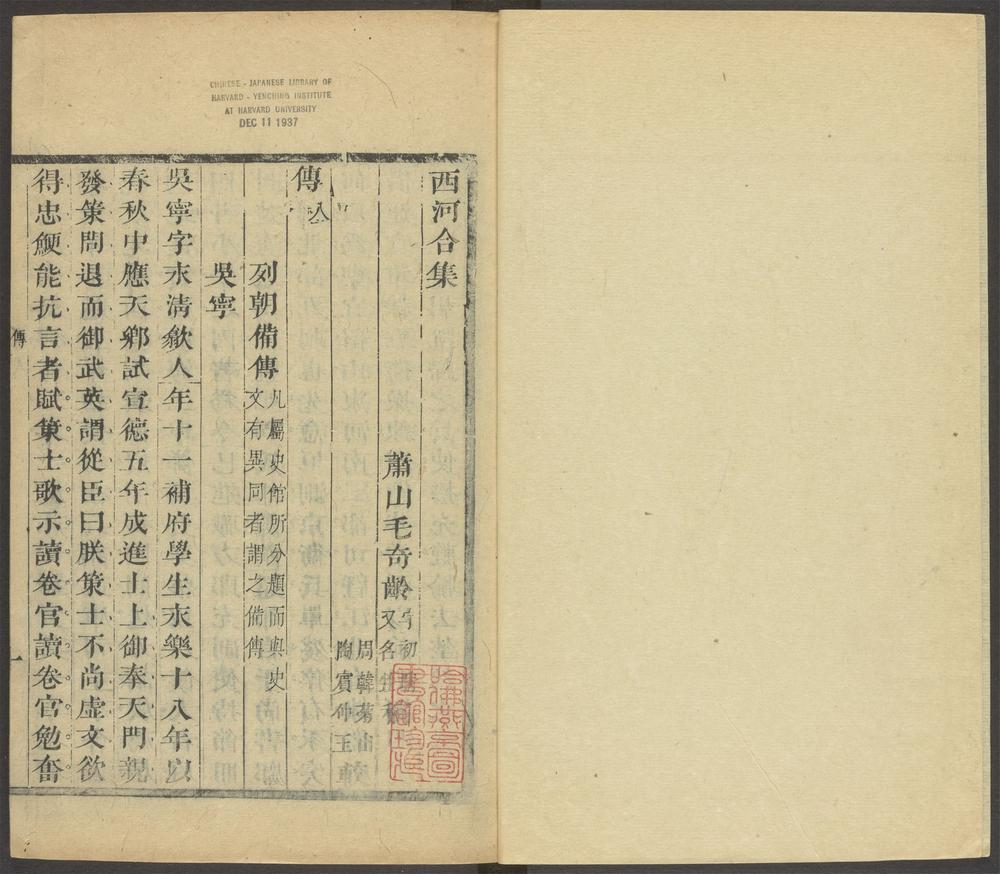 CHINESE - JAPANESE LIBRARY OF
HARVARD - YENCHING INSTITUTE
AT HARVARD UNIVERSITY
DEC 11 1937
西河合集
蕭山毛奇齡字初晴
又名甡稿
周韓菊山
陶賓仲玉
傳八
列朝備傳凡屬史館所分題而與史
文有異同者謂之備傳
吳寧
吳寧字永清歙人年十一補府學生永樂十八年以
春秋中應天鄉試宣德五年成進士上御奉天門親
發策問退而御武英謂從臣曰朕策士不尚虛文欲
得忠鯁能抗言者賦策士歌示讀卷官讀卷官勉奮
傳八
一
哈佛燕京圖書館珍藏